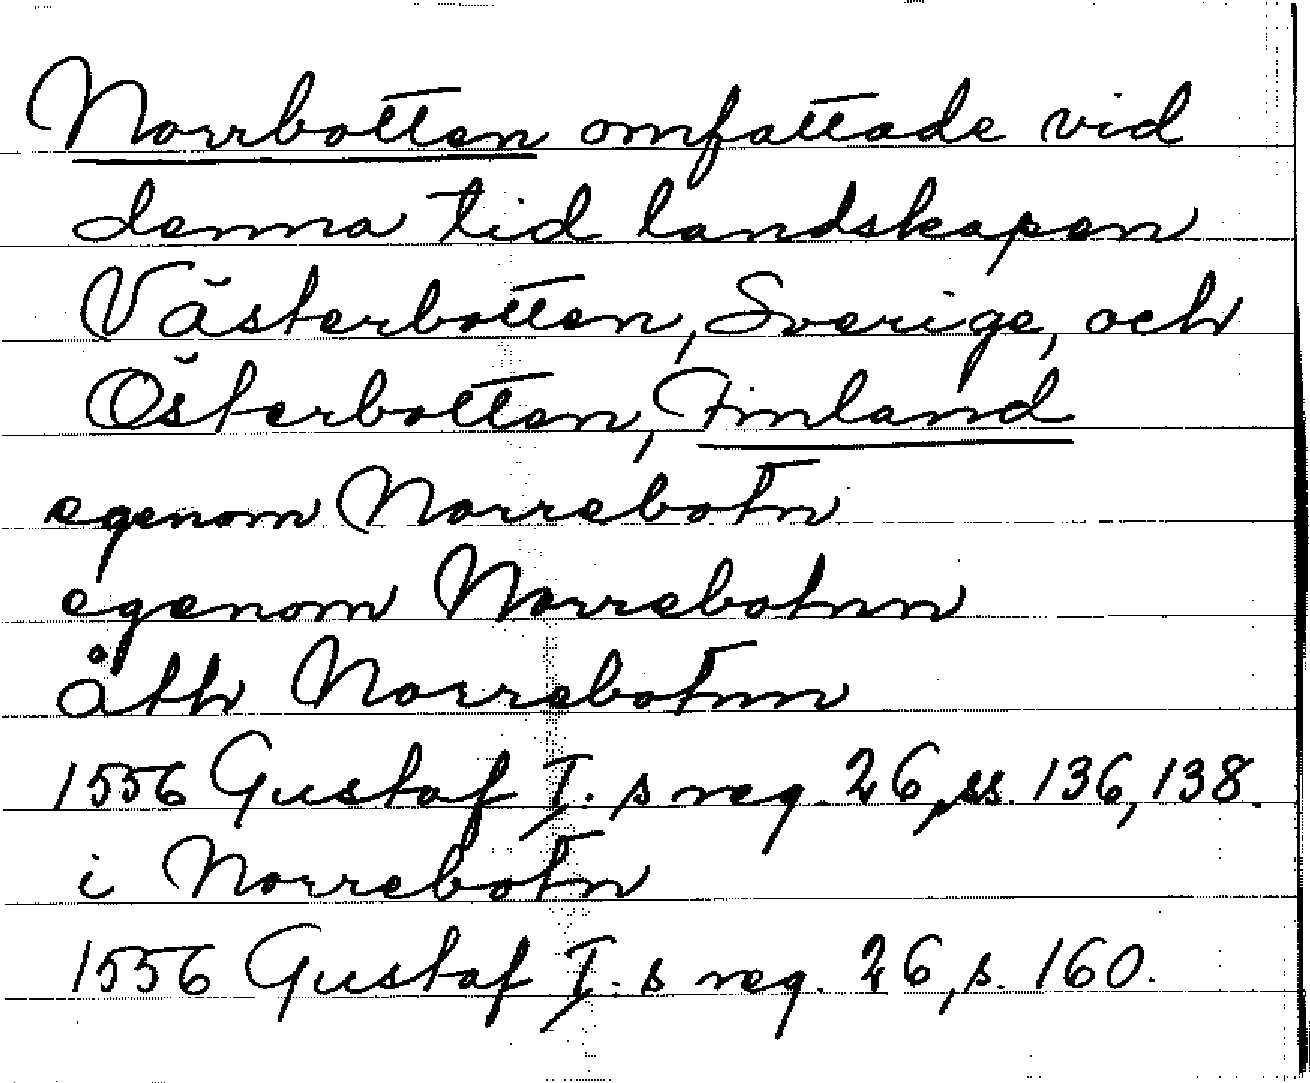 Norrbotten omfattade vid
denna tid landskapen
Västerbotten, Sverige, och
Österbotten, Finland
egenom Norrebotn
egenom Norrebotnn
åth Norrebotnn
1556 Gustaf I:s reg. 26, ss. 136, 138.
i Norrebotn
1556 Gustaf I:s reg. 26, s. 160.